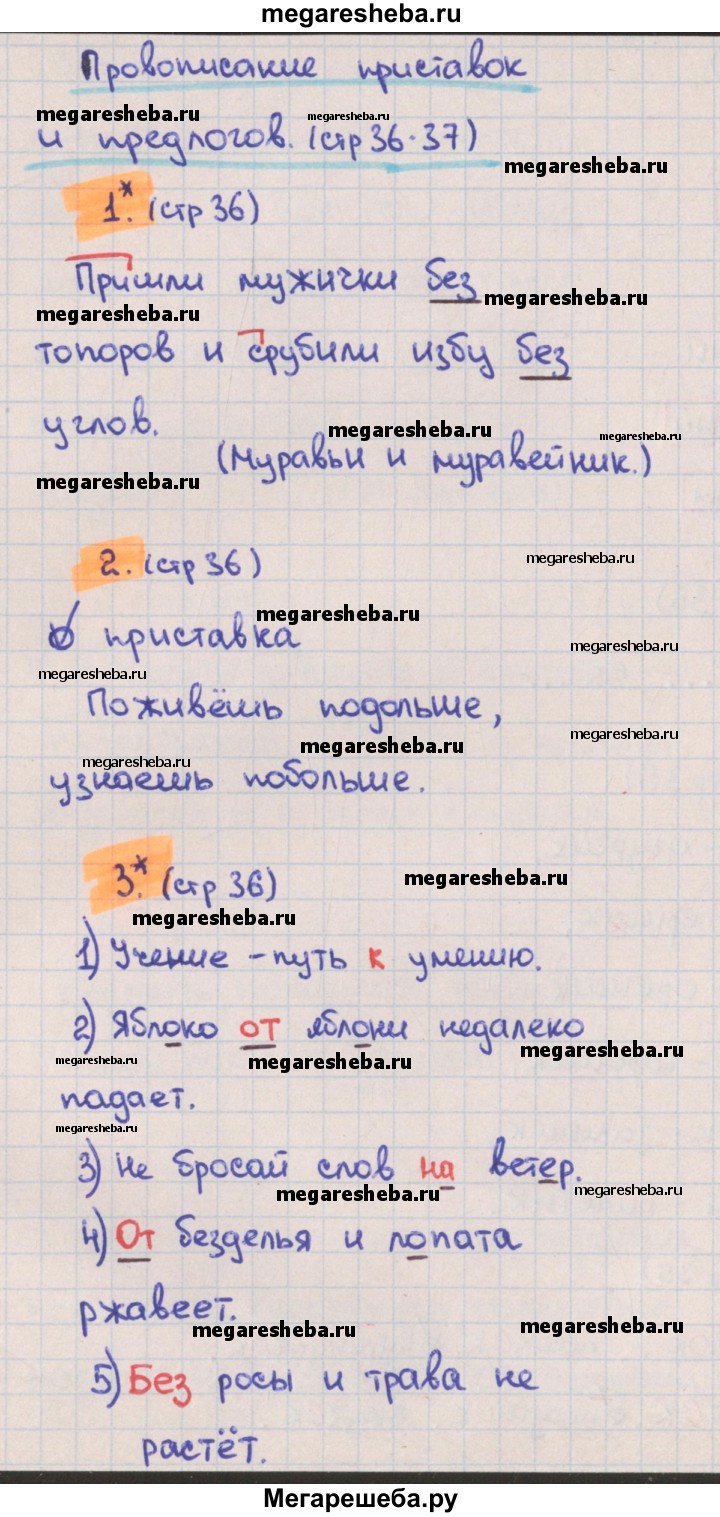 megaresheba.ru
Провописание приставок
megaresheba.ru megaresheba.ru
и предлогов. (стр 36-37)
megaresheba.ru
1.* (стр 36)
Пришли мужички без
megaresheba.ru
megaresheba.ru
топоров и срубили избу без
углов.
megaresheba.ru megaresheba.ru
(Муравьи и муравейник.)
megaresheba.ru
2. (стр 36)
megaresheba.ru
megaresheba.ru
О приставка
megaresheba.ru
megaresheba.ru
Поживёшь подольше,
megaresheba.ru
megaresheba.ru
megaresheba.ru
узнаешь побольше.
3.* (стр 36)
megaresheba.ru
megaresheba.ru
1) Учение - путь к умению.
2) Яблоко от яблони недалеко
megaresheba.ru
megaresheba.ru megaresheba.ru
падает.
megaresheba.ru
3) Не бросай слов на ветер.
megaresheba.ru megaresheba.ru
4) От безделья и лопата
ржавеет.
megaresheba.ru megaresheba.ru
5) Без росы и трава не
растёт.
Мегарешеба.ру